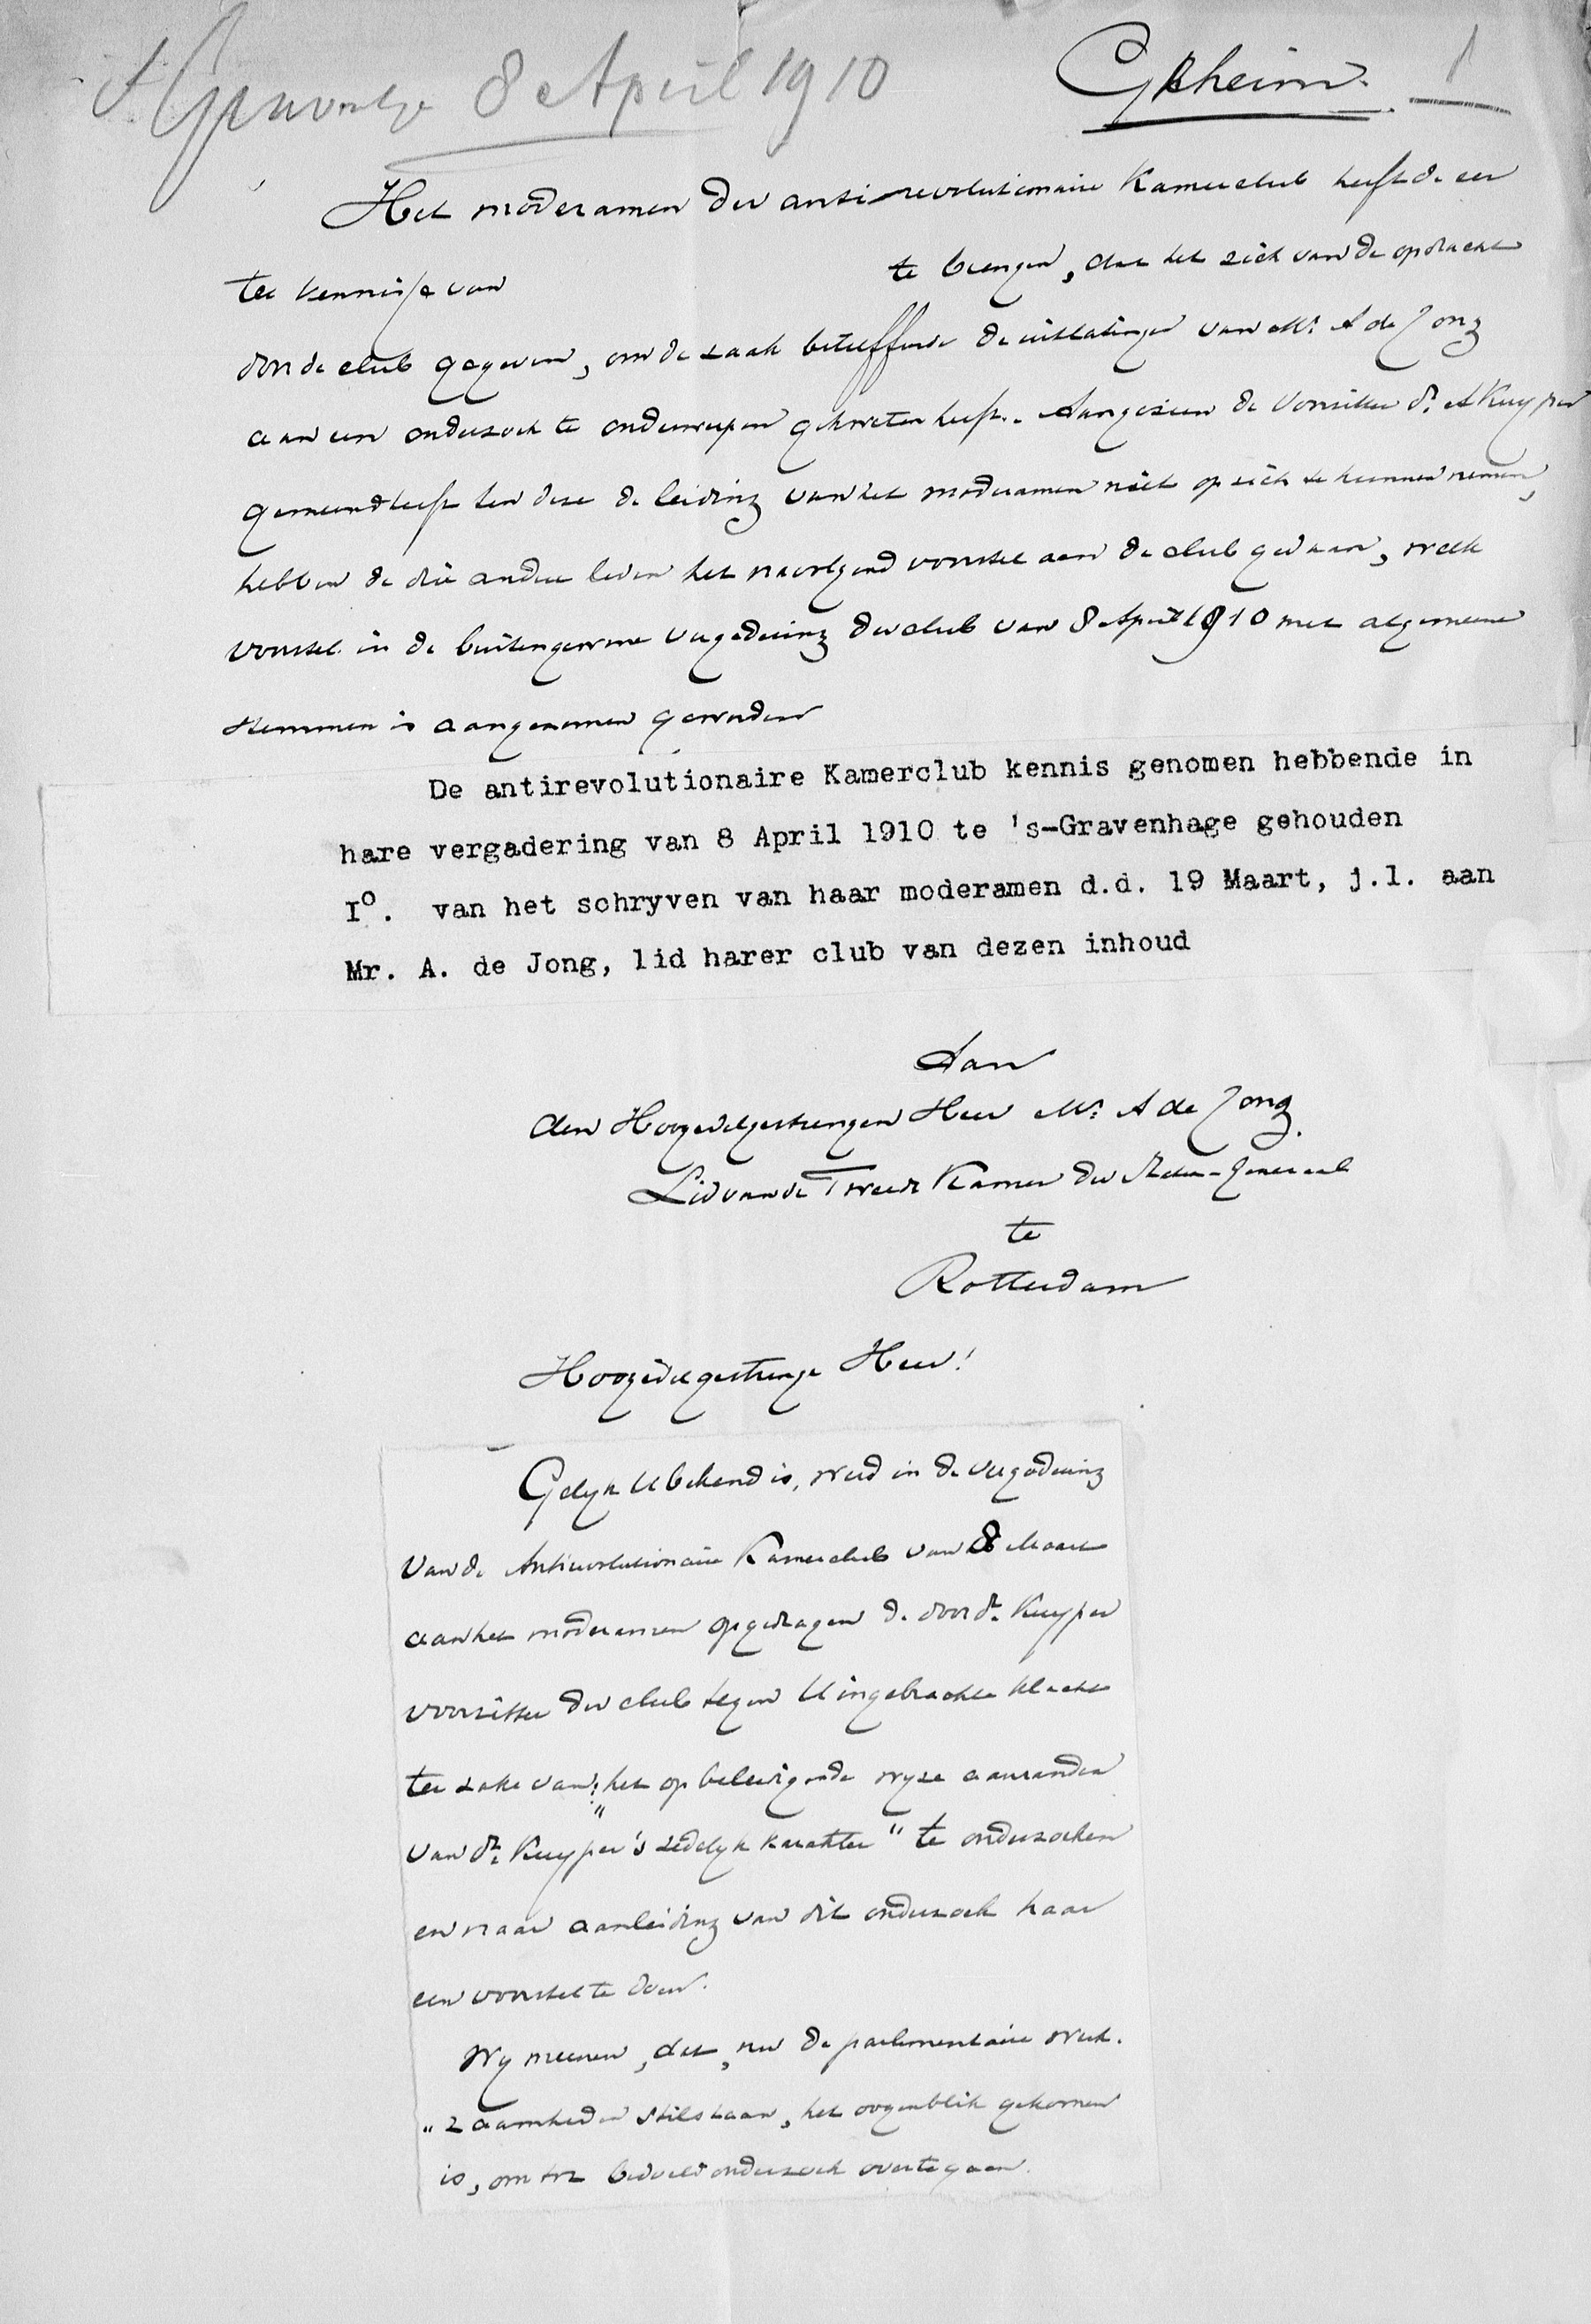 's Gravenhge 8 April 1910
Geheim. 1
Het moderamen der anti-revolutionaire Kamerclub heeft de eer
ter kennisse van te brengen, dat het zich van de opdracht
door de club gegeven, om de zaak betreffende de uitlatingen van Mr. A de Jong
aan een onderzoek te onderwerpen gekweten heeft. Aangezien de Voorzitter Dr. A Kuyper
gemeend heeft ten deze de leiding van het moderamen niet op zich te kunnen nemen,
hebben de drie andere leden het navolgend voorstel aan de club gedaan, welk
voorstel in de buitengewone vergadering der club van 8 April 1910 met algemeene
stemmen is aangenomen geworden
De antirevolutionaire Kamerclub kennis genomen hebbende in
hare vergadering van 8 April 1910 te 's-Gravenhage gehouden
I°. van het schryven van haar moderamen d.d. 19 Maart, j.l. aan
Mr. A. de Jong, lid harer club van dezen inhoud
Aan
den Hoogedelgestrengen Heer Mr. A de Jong.
Lid van de Tweede Kamer der Staten-Generaal
te
Rotterdam
Hoogedelgestrenge Heer!
Gelyk U bekend is, werd in de vergadering
van de Antirevolutionaire Kamerclub van 8 Maart
aan het moderamen opgedragen de door Dr. Kuyper
voorzitter der club tegen U ingebrachte klacht
ter zake van: "het op beleedigende wyze aanranden
van Dr. Kuyper's zedelyk karakter" te onderzoeken
en naar aanleiding van dit onderzoek haar
een voorstel te doen.
Wy meenen, dat, nu de parlementaire werk-
"zaamheden stilstaan, het oogenblik gekomen
is, om tot bedoeld onderzoek over te gaan.